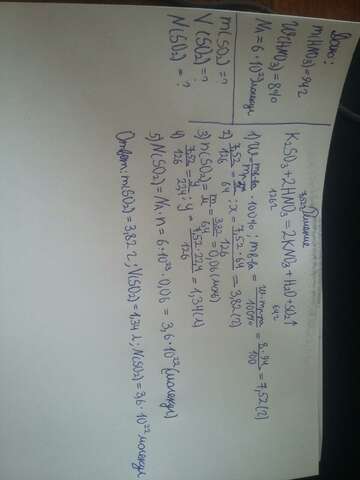 Дано:
m(HNO₃)=94г
W(HNO₃)=8%
Nₐ=6·10²³молекул
m(SO₂)=?
V(SO₂)=?
N(SO₂)=?
Решение
7,52г xг
K₂SO₃+2HNO₃=2KNO₃+H₂O+SO₂↑
126г 64г
1) W=mв-ва/mр-ра·100%; mв-ва=w·mр-ра/100%=8·94/100=7,52(г)
2) 7,52/126=x/64; x=7,52·64/126=3,82(г)
3) n(SO₂)=m/M=3,82/64=0,06(моль)
4) 7,52/126=y/22,4; y=7,52·22,4/126=1,34(л)
5) N(SO₂)=Nₐ·n=6·10²³·0,06=3,6·10²²(молекул)
Ответ: m(SO₂)=3,82г; V(SO₂)=1,34л; N(SO₂)=3,6·10²²молекул